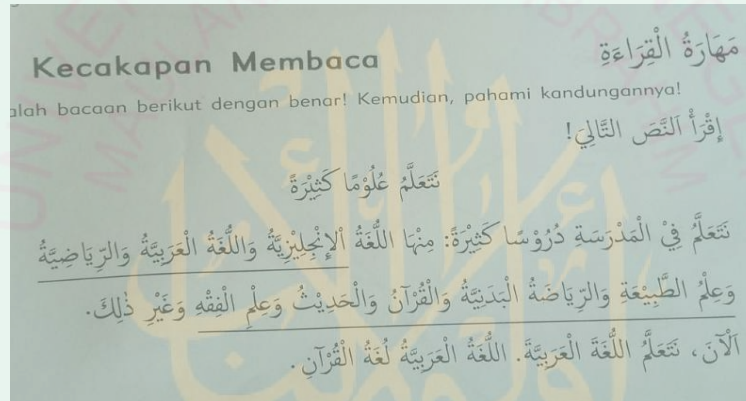 مَهَارَةُ الْقِرَاءَةِ
Kecakapan Membaca
alah bacaan berikut dengan benar! Kemudian, pahami kandungannya!
إِقْرَأْ اَلنَّصَ التَّالِيَ!
نَتَعَلَّمُ عُلُوْمًا كَثِيْرَةً
نَتَعَلَّمُ فِيْ الْمَدْرَسَةِ دُرُوْسًا كَثِيْرَةً: مِنْهَا اللُّغَةُ الْإِنْجِلِيْزِيَّةُ وَاللُّغَةُ الْعَرَبِيَّةُ وَالرِّيَاضِيَّةُ
وَعِلْمُ الطَّبِيْعَةِ وَالرِّيَاضَةُ الْبَدَنِيَّةُ وَالْقُرْآنُ وَالْحَدِيْثُ وَعِلْمِ الْفِقْهِ وَغَيْرِ ذٰلِكَ.
اَلْآنَ، نَتَعَلَّمُ اللُّغَةَ الْعَرَبِيَّةَ. اللُّغَةُ الْعَرَبِيَّةُ لُغَةُ الْقُرْآنِ.